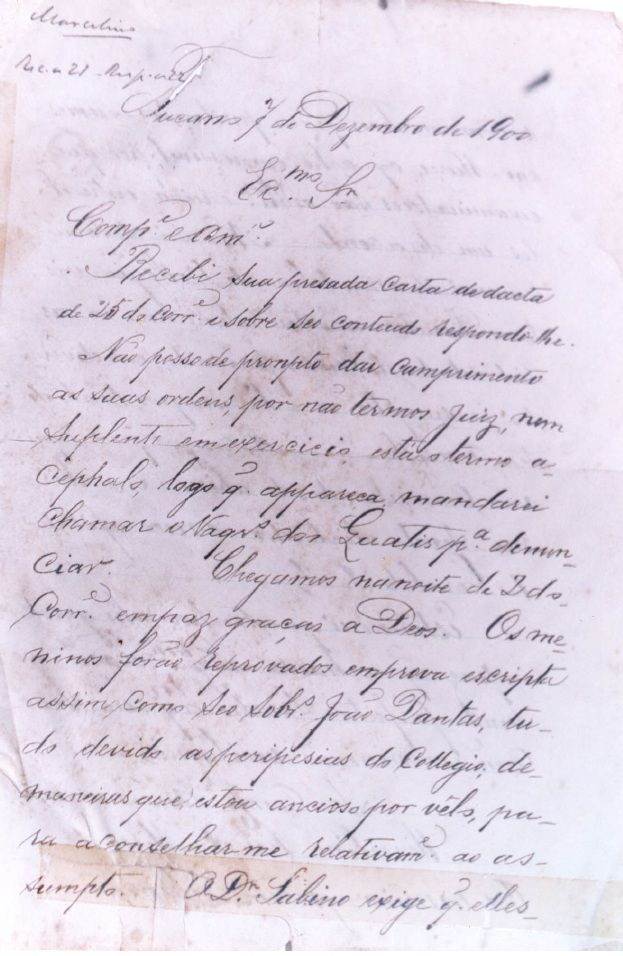 Marcelino
Rec. a 21 - Resp. a 22
Tucano 7 de Dezembro de 1900
Ex.mo Sr.
Comp.e e Am.o
Recebi sua presada carta de dacta
de 25 do Corr.e e sobre seo conteudo respondo-lhe.
Não posso de prompto dar cumprimento
as suas ordens, por não termos Juiz, nem
Suplente em exercicio, está o termo a-
cephalo, logo q. appareça, mandarei
chamar o dos Guatis p.a denun-
ciar. Chegamos na noite de 3 do
Corr.e em paz, graças a Deos. Os me-
ninos forão reprovados em prova escripta
assim como seo Sobr.o João Dantas, tu-
do devido as peripesias do Collegio, de
maneiras que, estou ancioso por vêl-o, pa-
ra aconselhar-me relativam.e ao as-
sumpto. O Dr. Sabino exige q. elles-